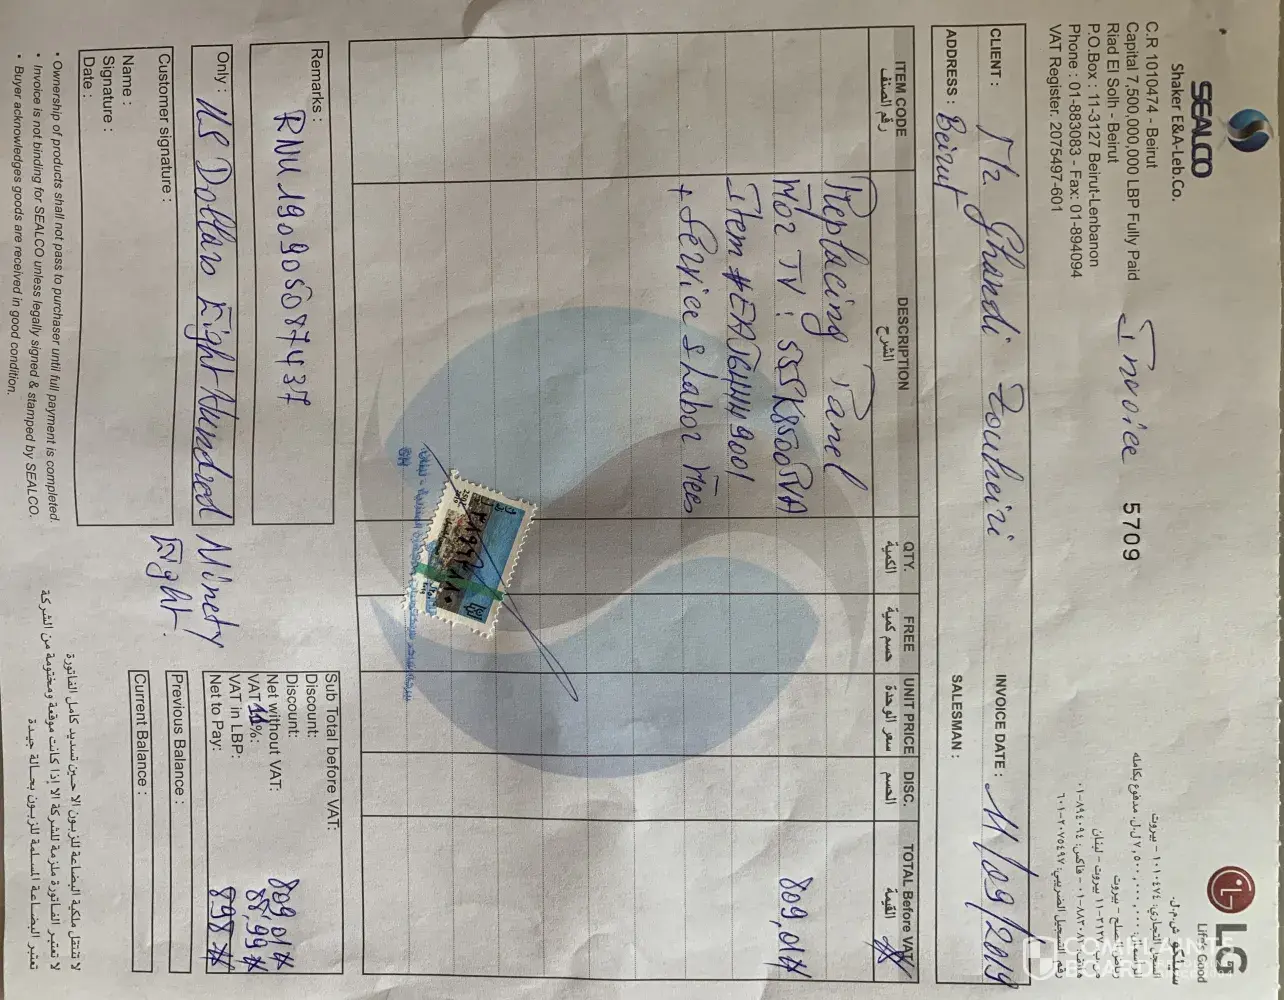 SEALCO
Shaker E&A-Leb.Co.
C.R 1010474 - Beirut
Capital 7,500,000,000 LBP Fully Paid
Riad El Solh - Beirut
P.O.Box : 11-3127 Beirut-Lenbanon
Phone : 01-883083 - Fax: 01-894094
VAT Register. 2075497-601
Invoice 5709
LG
Life's Good
سيلكو ش.م.ل.
السجل التجاري: ١٠١٠٤٧٤ – بيروت
٧,٥٠٠,٠٠٠,٠٠٠ ل.ل. مدفوع بكامله
رياض الصلح – بيروت
١١-٣١٢٧ بيروت – لبنان
فاكس: ٨٩٤٠٩٤-٠١
رقم التسجيل الضريبي: ٢٠٧٥٤٩٧-٦٠١
CLIENT : Mr Ghandi Zouheiri
INVOICE DATE : 11/09/2019
ADDRESS : Beirut
SALESMAN :
ITEM CODE DESCRIPTION QTY. FREE UNIT PRICE DISC. TOTAL Before VAT
رقم الصنف الشرح الكمية حسم كمية سعر الوحدة الحسم القيمة
Replacing Panel
For TV : 55SK8500PVA 809,01#
Item #EAJ64449001
+ Service & Labor Fees
Remarks :
RNU190905087437
Only : US Dollars Eight Hundred Ninety Eight.
Customer signature :
Name :
Signature :
Date :
Sub Total before VAT:
Discount:
Discount:
Net without VAT: 809,01#
VAT 11%: 88,99#
VAT in LBP:
Net to Pay: 898#
Previous Balance :
Current Balance :
• Ownership of products shall not pass to purchaser until full payment is completed.
• Invoice is not binding for SEALCO unless legally signed & stamped by SEALCO.
• Buyer acknowledges goods are received in good condition.
لا تنتقل ملكية البضاعة للزبون الا حين تسديد كامل الفاتورة
لا تعتبر الفاتورة ملزمة للشركة الا إذا كانت موقعة ومختومة من الشركة
تعتبر البضاعة المسلمة للزبون بحالة جيدة
COMPLAINTS
BOARD